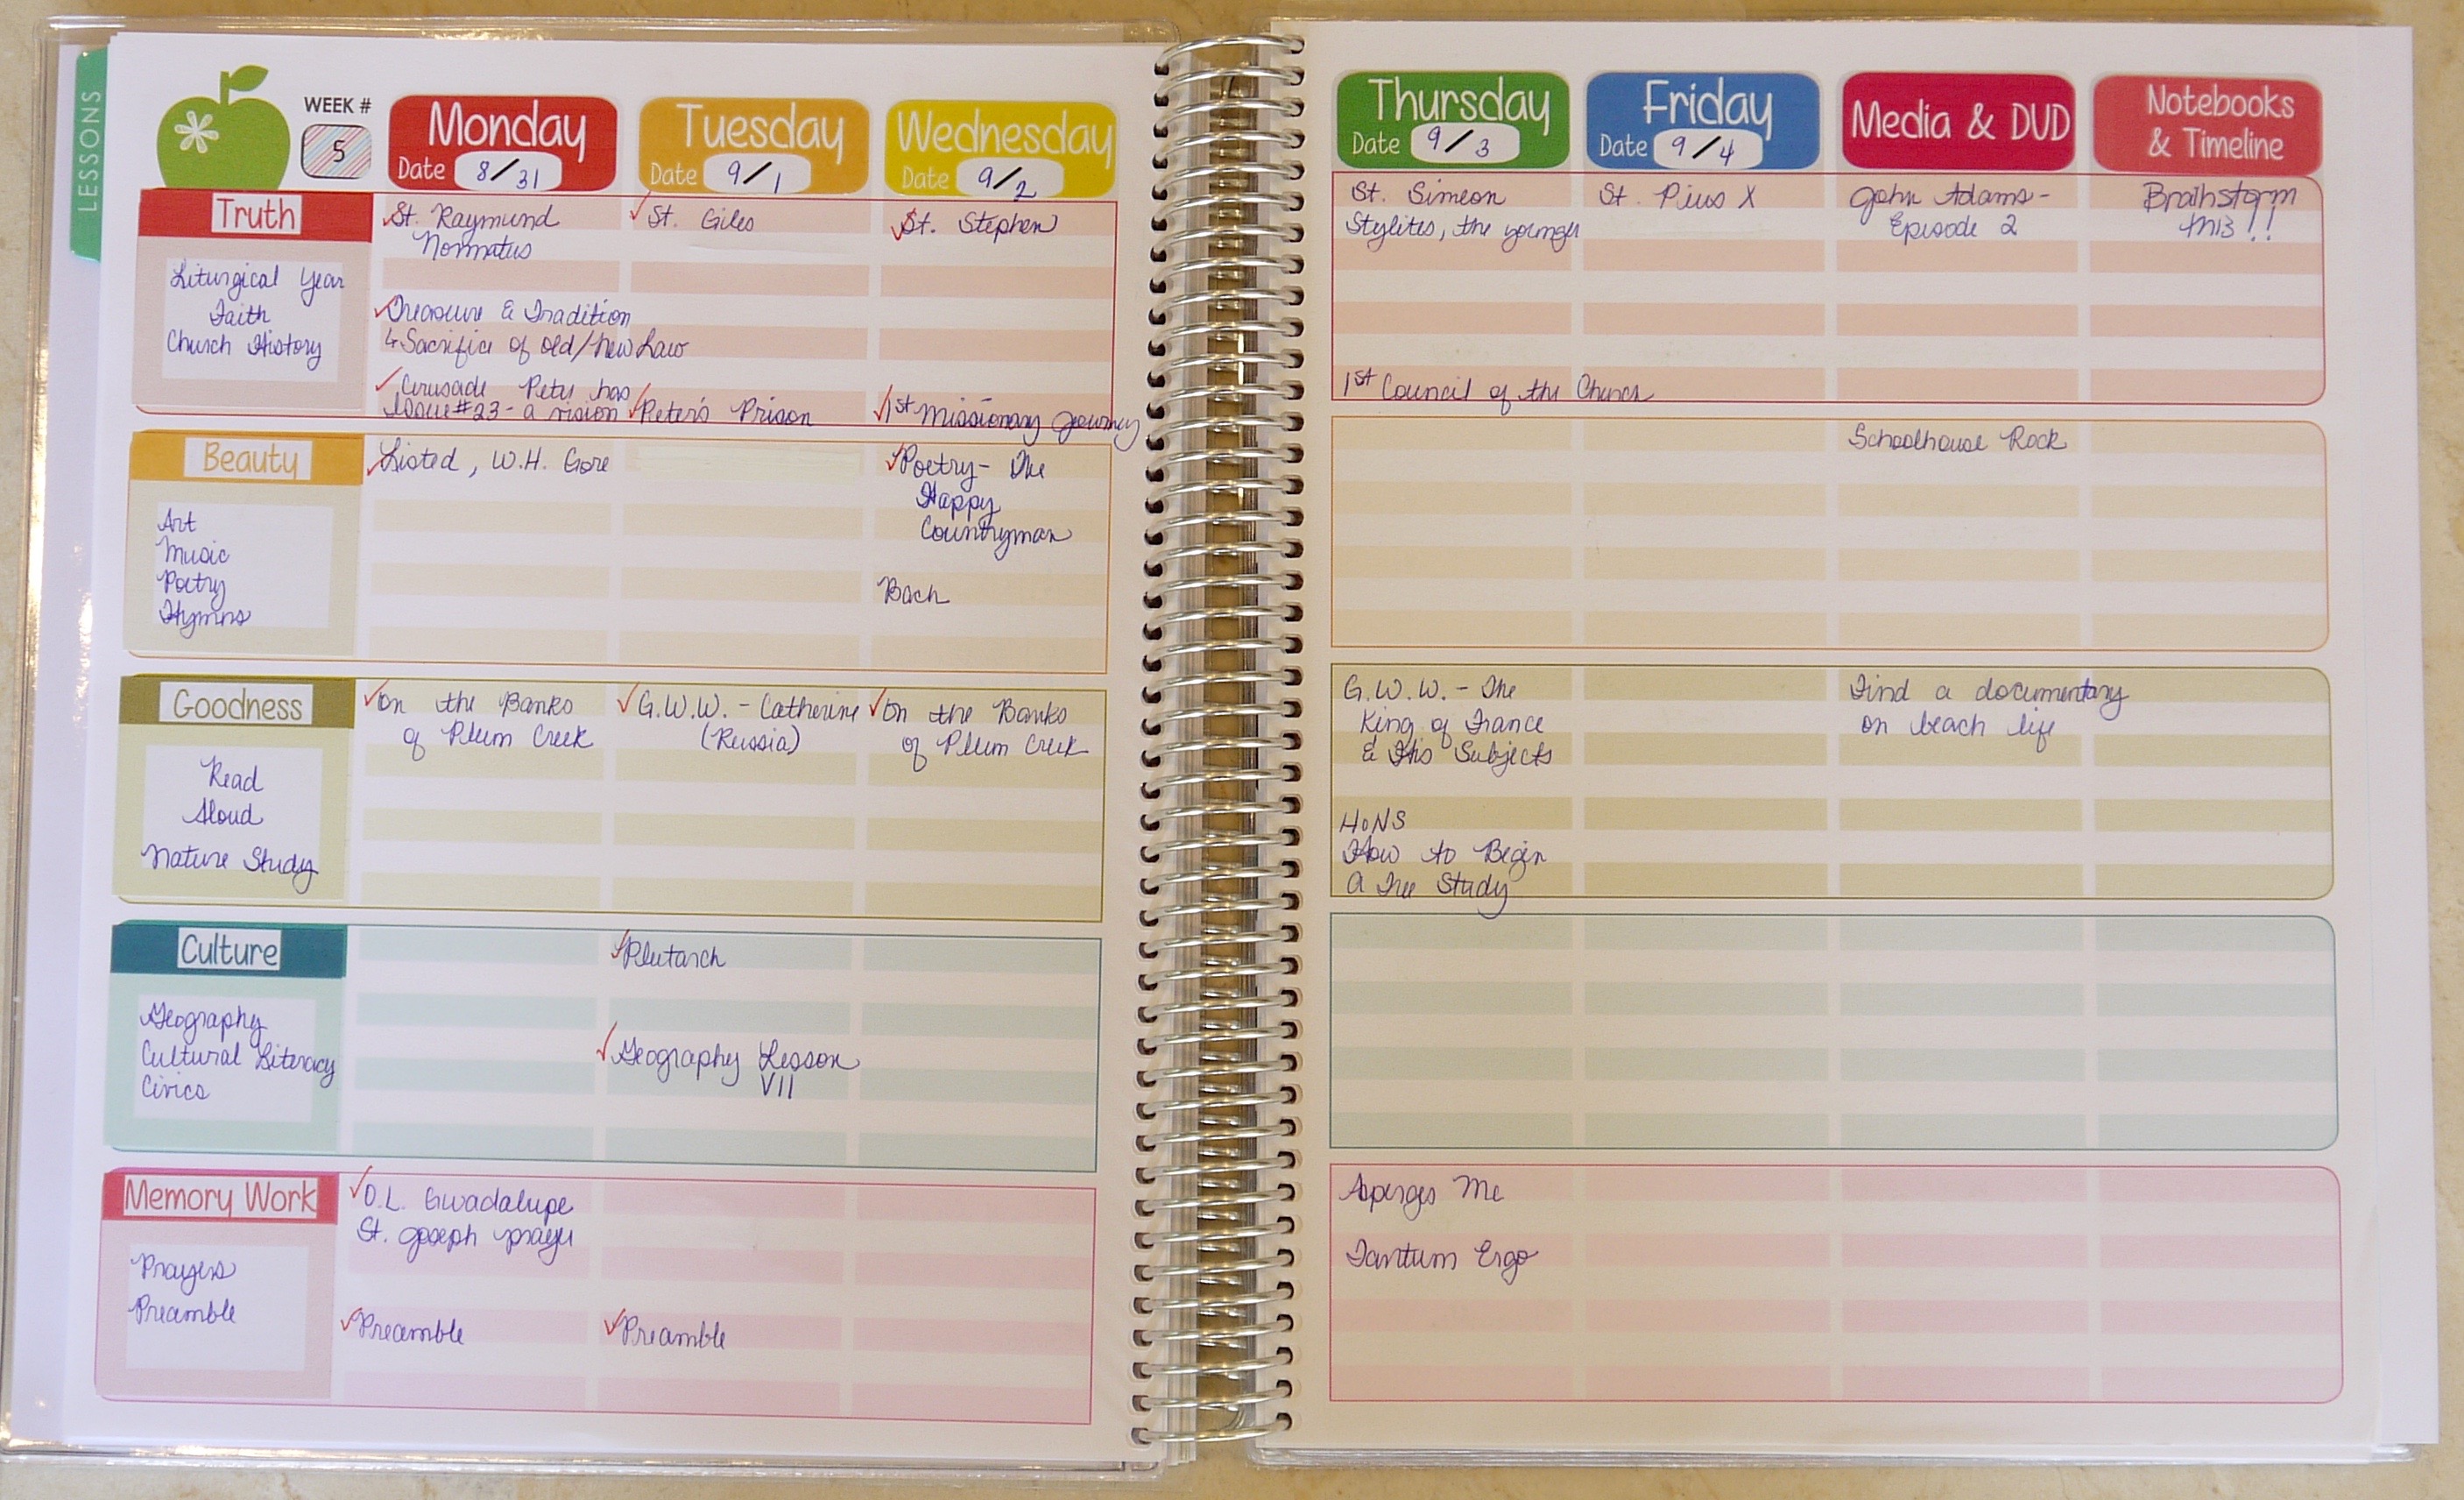 LESSONS
WEEK #
5
Monday
Date 8/31
Tuesday
Date 9/1
Wednesday
Date 9/2
Thursday
Date 9/3
Friday
Date 9/4
Media & DVD
Notebooks
& Timeline
Truth
Liturgical Year
Faith
Church History
St. Raymund
Nonnatus
Treasure & Tradition
↳ Sacrifice of old/new Law
Crusade Peter has
Issue #23 - a vision
St. Giles
Peter's Prison
St. Stephen
1st Missionary Journey
St. Simeon
Stylites, the younger
1st Council of the Church
St. Pius X
John Adams -
Episode 2
Brainstorm
this!!
Beauty
Art
Music
Poetry
Hymns
Listed, W.H. Gore
Poetry - The
Happy
Countryman
Bach
Schoolhouse Rock
Goodness
Read
Aloud
Nature Study
On the Banks
of Plum Creek
G.W.W. - Catherine
(Russia)
On the Banks
of Plum Creek
G.W.W. - The
King of France
& His Subjects
HoNS
How to Begin
A Tree Study
Find a documentary
on beach life
Culture
Geography
Cultural Literacy
Civics
Plutarch
Geography Lesson
VII
Memory Work
Prayers
Preamble
O.L. Gwadalupe
St. Joseph prayer
Preamble
Preamble
Asperges Me
Tantum Ergo